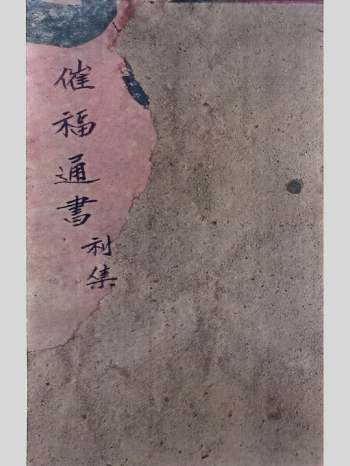 催福通書
利集